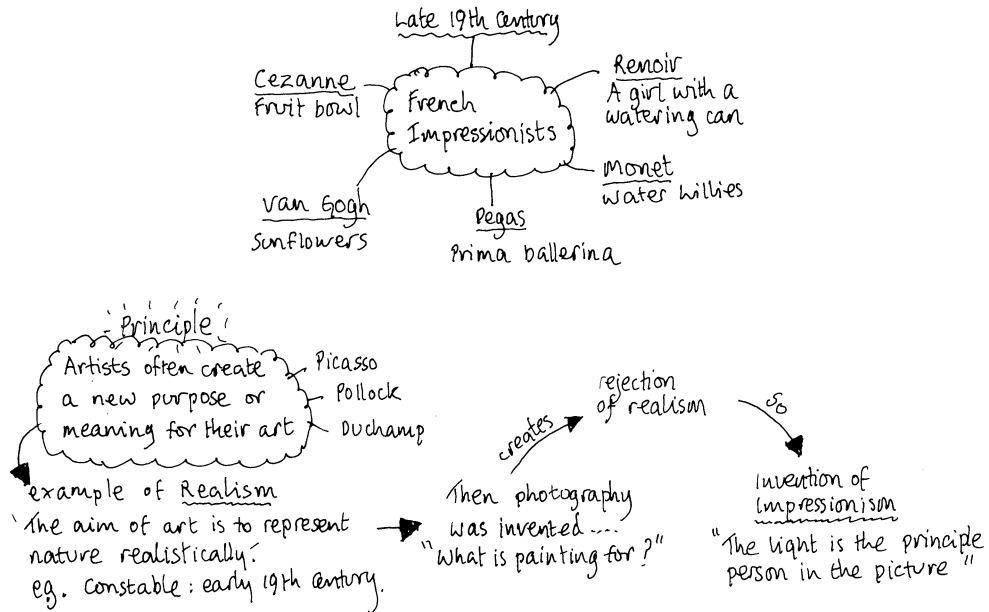 Late 19th Century
Cezanne
Fruit bowl
French
Impressionists
Renoir
A girl with a
watering can
Monet
Water lillies
Van Gogh
Sunflowers
Degas
Prima ballerina
Principle
Artists often create
a new purpose or
meaning for their art
Picasso
Pollock
Duchamp
example of Realism
'The aim of art is to represent
nature realistically'.
eg. Constable : early 19th Century.
Then photography
was invented....
"What is painting for?"
creates
rejection
of realism
so
Invention of
Impressionism
"The light is the principle
person in the picture"